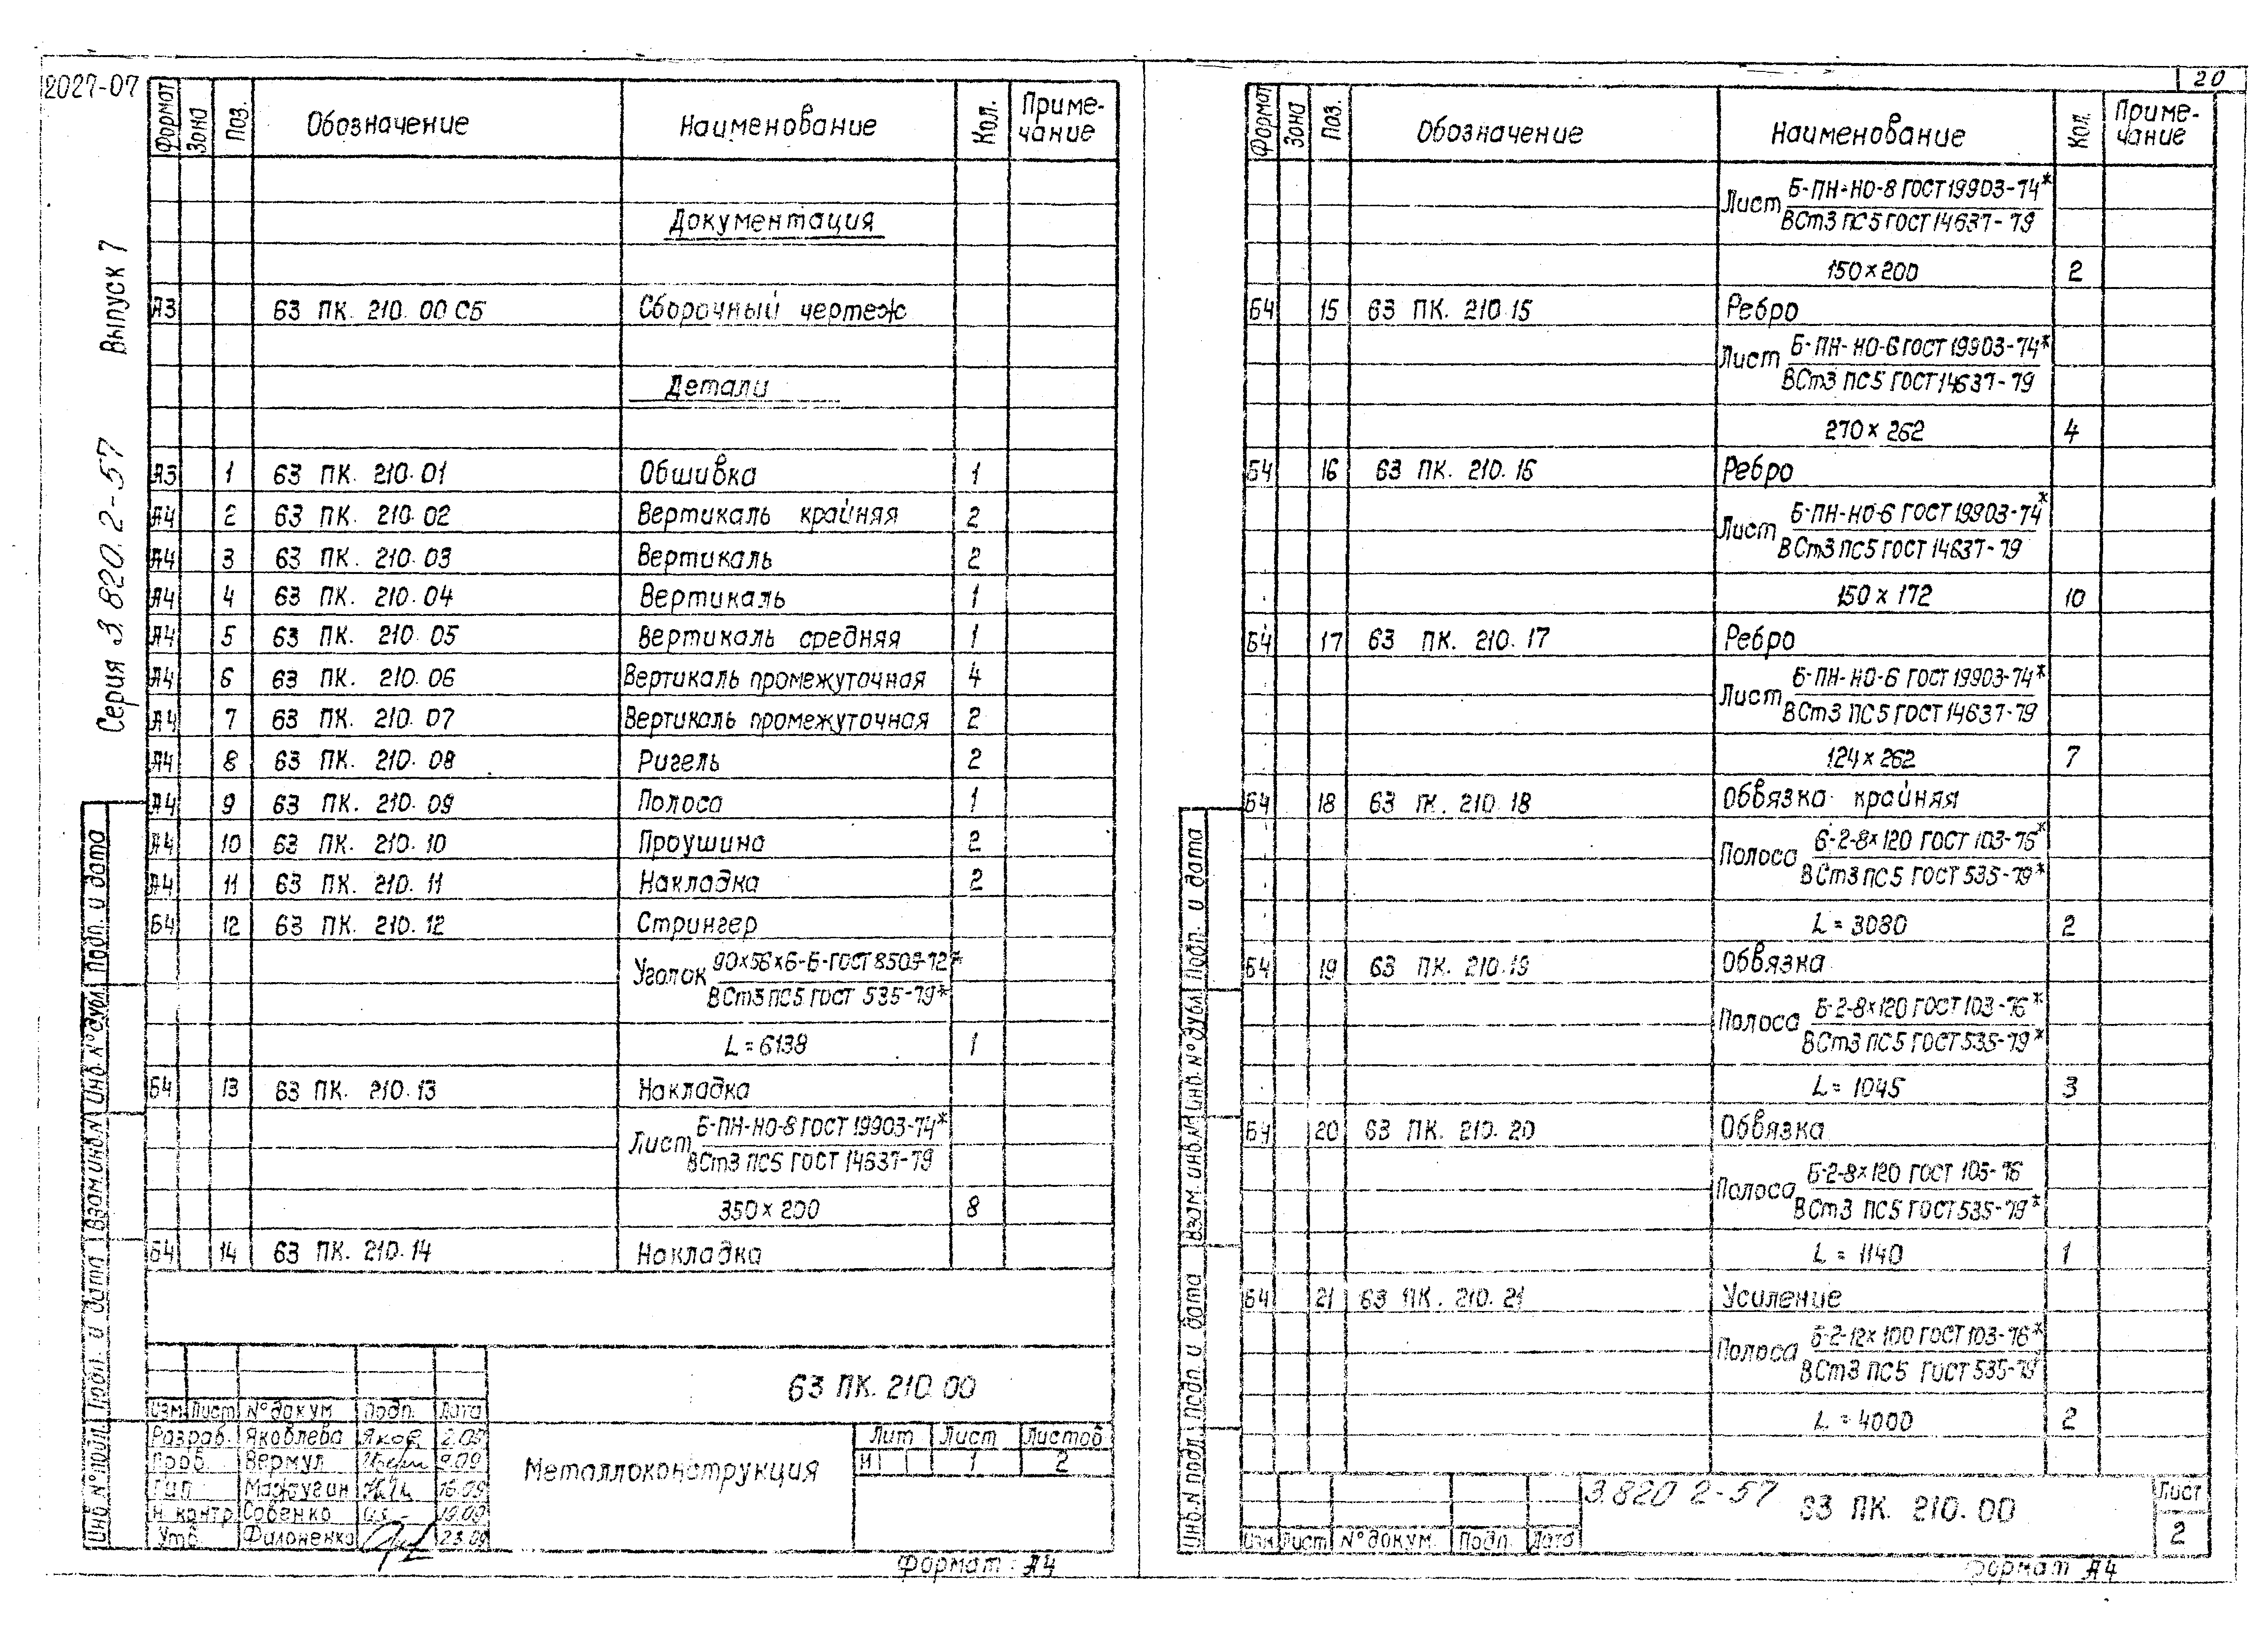 12027-07
Серия 3.820.2-57 Выпуск 7
Формат Зона Поз. Обозначение Наименование Кол. Приме-
чание
Документация
А3 63 ПК. 210. 00 СБ Сборочный чертеж
Детали
А3 1 63 ПК. 210. 01 Обшивка 1
А4 2 63 ПК. 210. 02 Вертикаль крайняя 2
А4 3 63 ПК. 210. 03 Вертикаль 2
А4 4 63 ПК. 210. 04 Вертикаль 1
А4 5 63 ПК. 210. 05 Вертикаль средняя 1
А4 6 63 ПК. 210. 06 Вертикаль промежуточная 4
А4 7 63 ПК. 210. 07 Вертикаль промежуточная 2
А4 8 63 ПК. 210. 08 Ригель 2
А4 9 63 ПК. 210. 09 Полоса 1
А4 10 63 ПК. 210. 10 Проушина 2
А4 11 63 ПК. 210. 11 Накладка 2
Б4 12 63 ПК. 210. 12 Стрингер
Уголок 90×56×6-Б-ГОСТ 8509-72*
ВСт3 ПС5 ГОСТ 535-79*
L = 6138 1
Б4 13 63 ПК. 210. 13 Накладка
Лист Б-ПН-НО-8 ГОСТ 19903-74*
ВСт3 ПС5 ГОСТ 14637-79
350 × 200 8
Б4 14 63 ПК. 210. 14 Накладка
63 ПК. 210. 00
Изм. Лист № докум Подп. Дата
Разраб. Яковлева Яков 2.09
Пров. Вермул 9.09
Гип 16.09
Н. контр. Совенко 19.09
Утв. Филоненко 23.09
Металлоконструкция
Лит Лист Листов
И 1 2
Инв. № подл. Подп. и дата Взам. инв. № Инв. № дубл. Подп. и дата
Формат: А4
20
Формат Зона Поз. Обозначение Наименование Кол. Приме-
чание
Лист Б-ПН-НО-8 ГОСТ 19903-74*
ВСт3 ПС5 ГОСТ 14637-79
150 × 200 2
Б4 15 63 ПК. 210. 15 Ребро
Лист Б-ПН-НО-6 ГОСТ 19903-74*
ВСт3 ПС5 ГОСТ 14637-79
270 × 262 4
Б4 16 63 ПК. 210. 16 Ребро
Лист Б-ПН-НО-6 ГОСТ 19903-74*
ВСт3 ПС5 ГОСТ 14637-79
150 × 172 10
Б4 17 63 ПК. 210. 17 Ребро
Лист Б-ПН-НО-6 ГОСТ 19903-74*
ВСт3 ПС5 ГОСТ 14637-79
124 × 262 7
Б4 18 63 ПК. 210. 18 Обвязка крайняя
Полоса Б-2-8×120 ГОСТ 103-76*
ВСт3 ПС5 ГОСТ 535-79*
L = 3080 2
Б4 19 63 ПК. 210. 19 Обвязка
Полоса Б-2-8×120 ГОСТ 103-76*
ВСт3 ПС5 ГОСТ 535-79*
L = 1045 3
Б4 20 63 ПК. 210. 20 Обвязка
Полоса Б-2-8×120 ГОСТ 103-76
ВСт3 ПС5 ГОСТ 535-79*
L = 1140 1
Б4 21 63 ПК. 210. 21 Усиление
Полоса Б-2-12×100 ГОСТ 103-76*
ВСт3 ПС5 ГОСТ 535-79*
L = 4000 2
Изм. Лист № докум. Подп. Дата
3.820 2-57 63 ПК. 210. 00
Лист
2
Инв. № подл. Подп. и дата Взам. инв. № Инв. № дубл. Подп. и дата
Формат А4